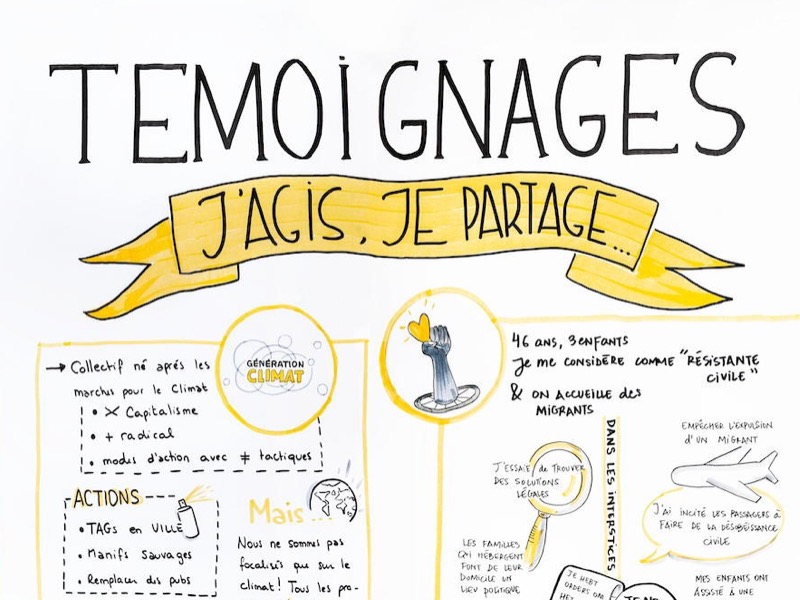 TEMOIGNAGES
J'AGIS, JE PARTAGE...
GÉNÉRATION
CLIMAT
→ Collectif né après les
marches pour le Climat
• X Capitalisme
• + radical
• modes d'action avec ≠ tactiques
ACTIONS
• TAGs en VILLE
• Manifs sauvages
• Remplacer des pubs
Mais...
Nous ne sommes pas
focalisés que sur le
climat! Tous les pro-
46 ans, 3 enfants
Je me CONSIDÈRE COMME "RÉSISTANTE
CIVILE"
& ON ACCUEILLE des
MIGRANTS
J'ESSAIE de TROUVER
DES SOLUTIONS
LÉGALES
LES FAMILLES
QUI HÉBERGENT
FONT DE LEUR
DOMICILE UN
LIEU POLITIQUE
DANS LES INTERSTICES
EMPÊCHER L'EXPULSION
d'UN MIGRANT
J'AI INCITÉ LES PASSAGERS à
FAIRE DE LA DÉSOBÉISSANCE
CIVILE
MES ENFANTS ONT
ASSISTÉ À UNE